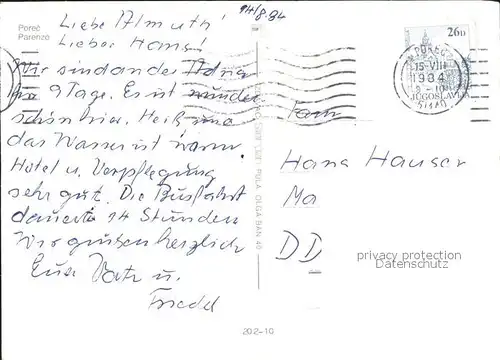 Poreč
Parenzo
14/8.84
Liebe Almuth
Lieber Hans
Wir sind an der Adria
9 Tage. Es ist wunder
schön hier. Heiß und
das Wasser ist warm
Hotel u. Verpflegung
sehr gut. Die Busfahrt
dauerte 14 Stunden
Wir grüßen herzlich
Eure u.
Friedel
26 D
15-VIII
1984
JUGOSLAVIJA
PULA OLGA BAN 46
Fam
Hans Hauser
Ma
DD
privacy protection
Datenschutz
202-10